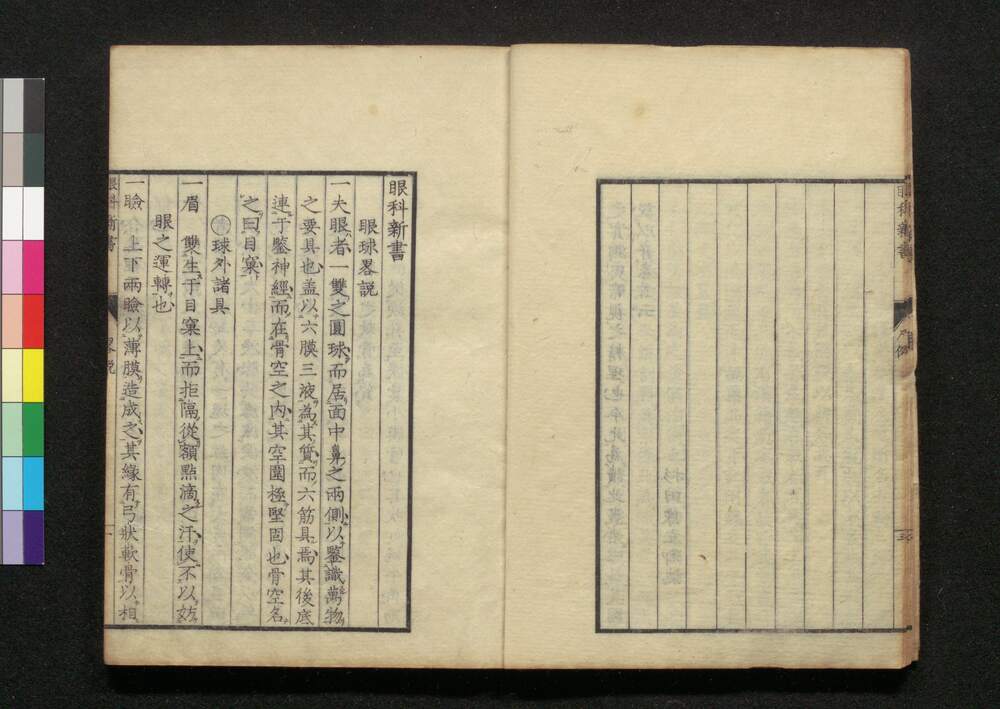 眼科新書
眼球畧説
一夫眼者一雙之圓球而居面中鼻之兩側以鑒識萬物
之要具也盖以六膜三液為其質而六筋具焉其後底
連于鑒神經而在骨空之内其空圍極堅固也骨空名
之曰目窠
球外諸具
一眉 雙生于目窠上而拒隔從額㸃滴之汗使不以妨
眼之運轉也
一瞼 上下兩瞼以薄膜造成之其緣有弓狀軟骨以相
眼科新書